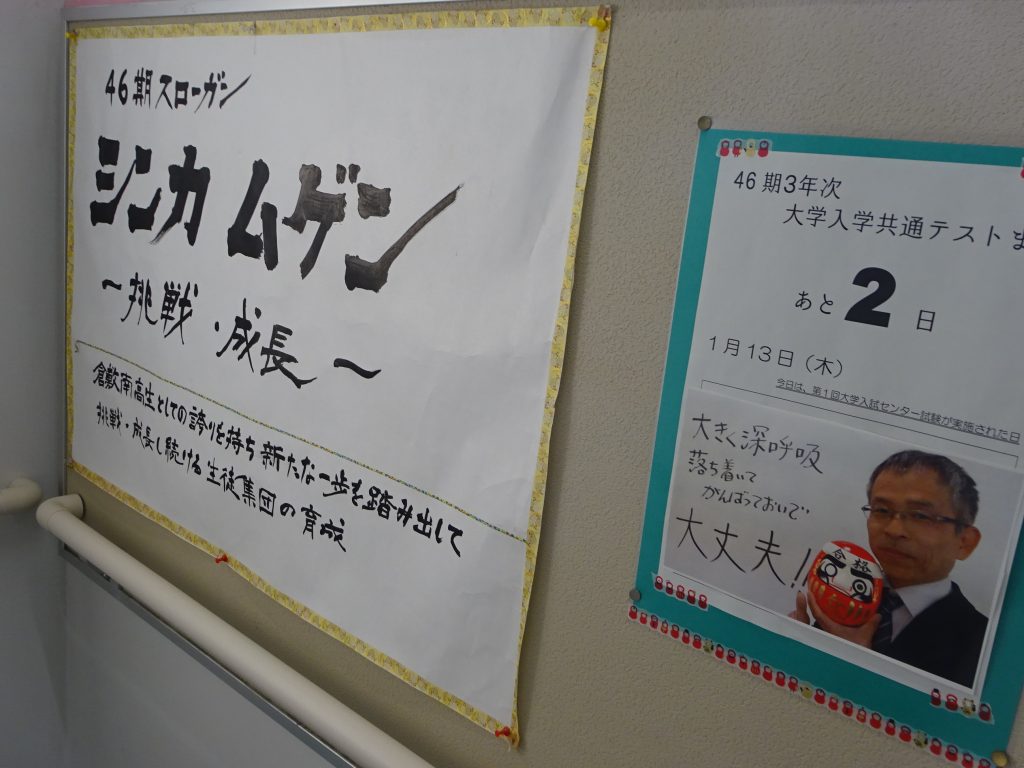 46期スローガン
シンカ ムゲン
～挑戦・成長～
倉敷南高生としての誇りを持ち 新たな一歩を踏み出して
挑戦・成長し続ける生徒集団の育成
46期3年次
大学入学共通テストま
あと2日
1月13日（木）
今日は、第1回大学入試センター試験が実施された日
大きく深呼吸
落ち着いて
がんばっておいで
大丈夫!
合格